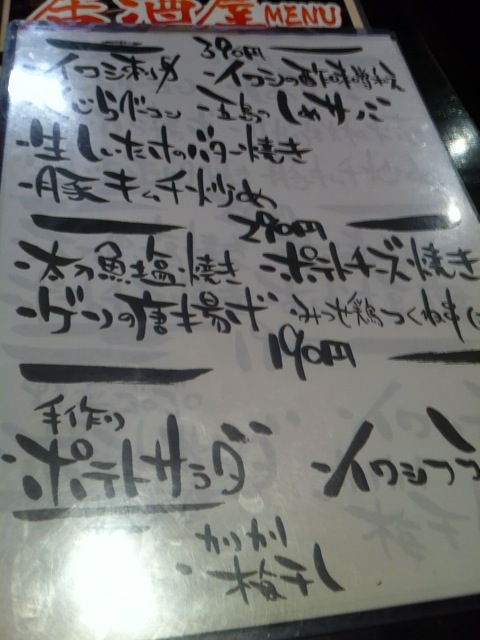 居酒屋MENU
390円
・イワシ刺身 ・イワシの酢味噌和え
くじらベーコン ・五島のしめサバ
・生しいたけのバター焼き
・豚キムチ炒め
290円
・太刀魚塩焼き ・ポテトチーズ焼き
・ゲソの唐揚げ ・みつせ鶏つくね串
190円
手作り
・ポテトサラダ ・イワシフ
カリカリ
・梅干し